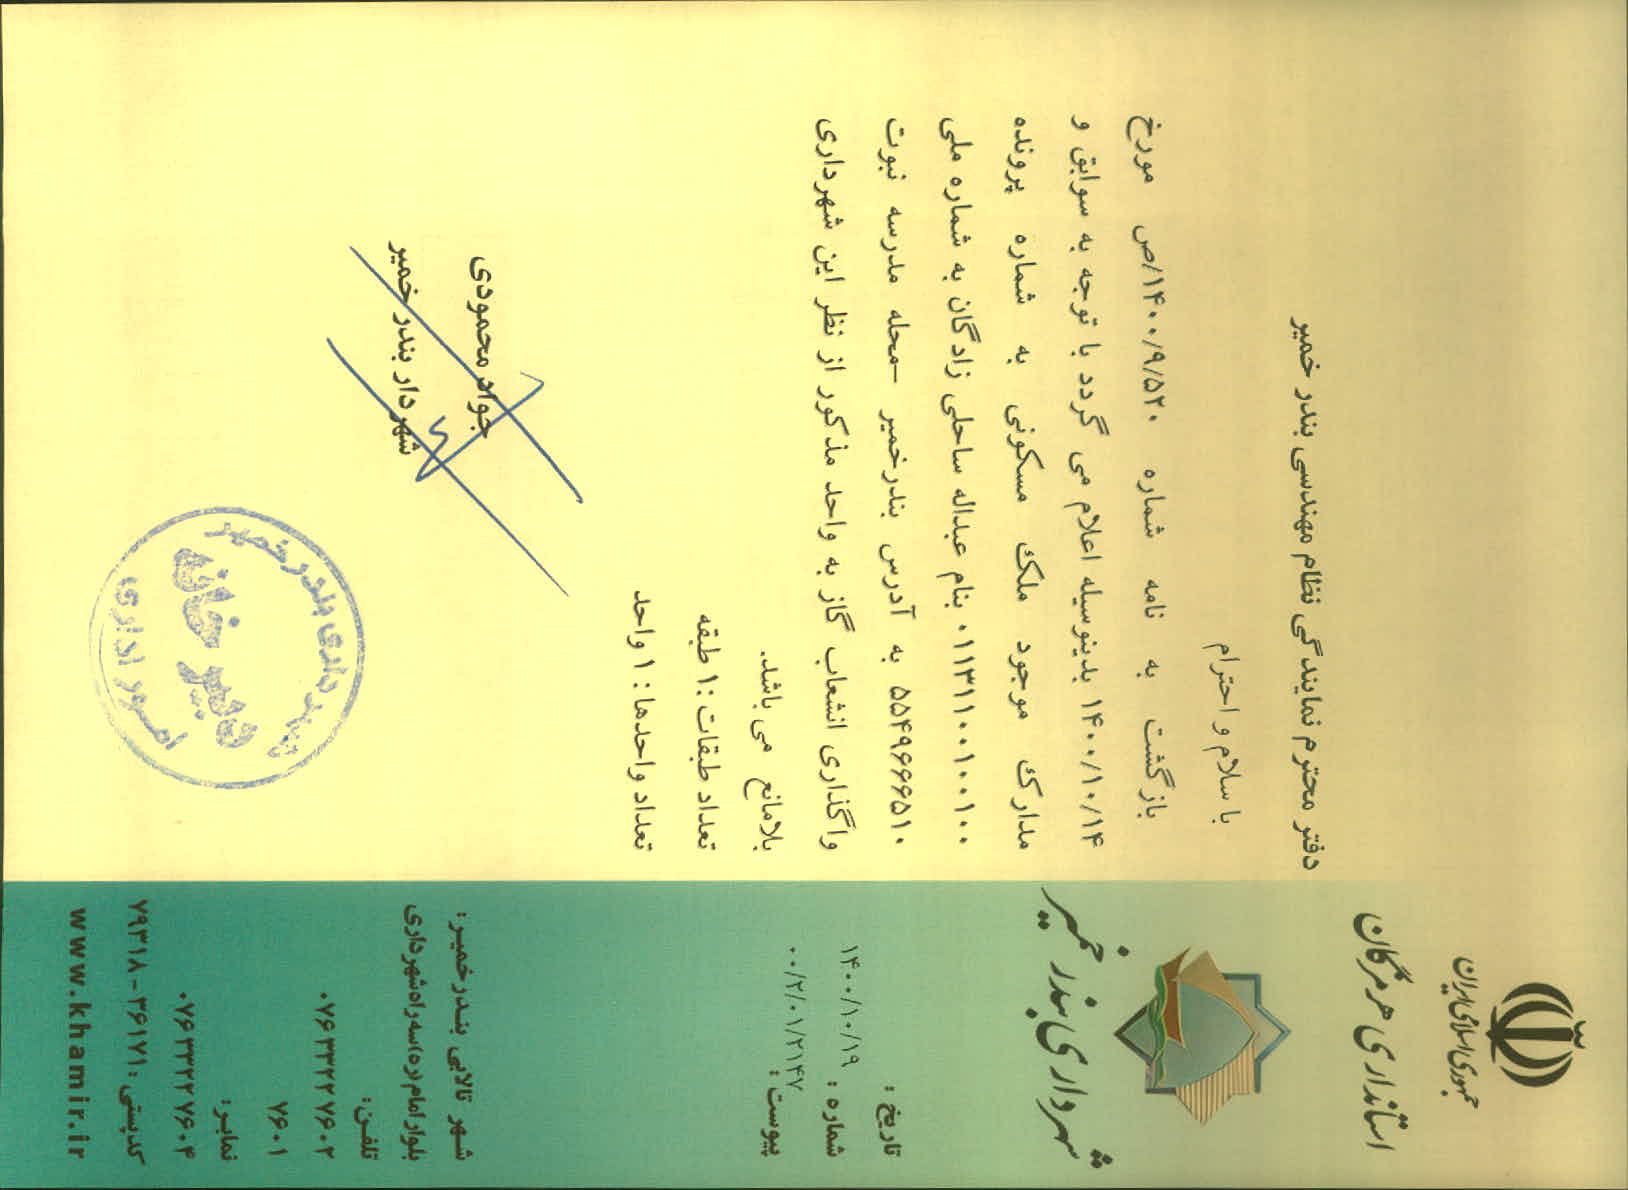 جمهوری اسلامی ایران
استانداری هرمزگان
شهرداری بندر خمیر
تاریخ :
۱۴۰۰/۱۰/۱۹
شماره :
۰۰/۲/۰۱/۲۱۴۷
پیوست :
دفتر محترم نمایندگی نظام مهندسی بندر خمیر
با سلام و احترام
بازگشت به نامه شماره ۱۴۰۰/۹/۵۲۰/ص مورخ
۱۴۰۰/۱۰/۱۴ بدینوسیله اعلام می گردد با توجه به سوابق و
مدارک موجود ملک مسکونی به شماره پرونده
۰۱۱۳۱۱۰۰۱۰۰۱۰۰ بنام عبداله ساحلی زادگان به شماره ملی
۵۵۴۹۶۶۶۵۱۰ به آدرس بندرخمیر -محله مدرسه نبوت
واگذاری انشعاب گاز به واحد مذکور از نظر این شهرداری
بلامانع می باشد.
تعداد طبقات :۱ طبقه
تعداد واحدها : ۱ واحد
جواد محمودی
شهردار بندر خمیر
شهرداری بندر خمیر
دبیرخانه
امور اداری
شهر تالابی بندر خمیر:
بلوار امام (ره) سه راه شهرداری
تلفن:
۰۷۶۳۳۲۲۷۶۰۲
۷۶۰۱
نمابر:
۰۷۶۳۳۲۲۷۶۰۴
کدپستی : ۳۶۱۷۱ - ۷۹۳۱۸
www.khamir.ir